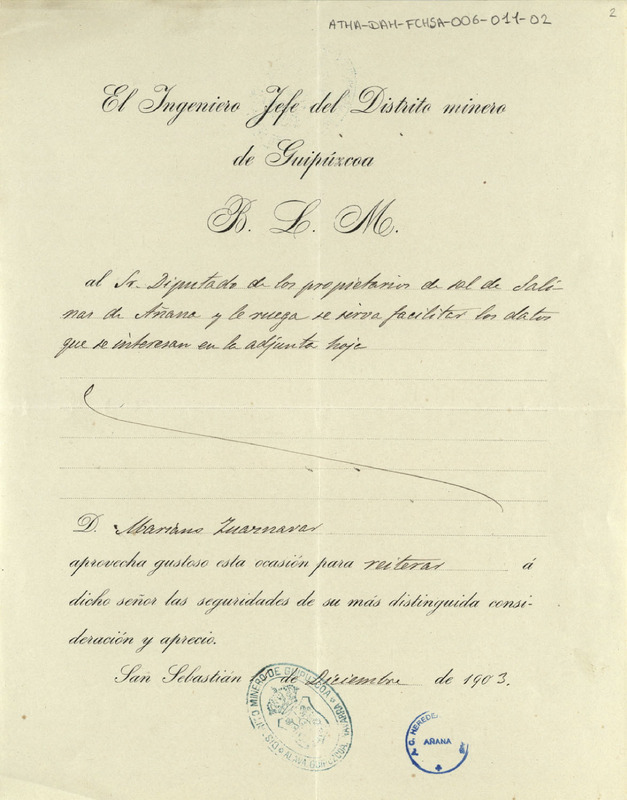 ATHA-DAH-FCHSA-006-011-02
2
El Ingeniero Jefe del Distrito minero
de Guipúzcoa
B. L. M.
al Sr. Diputado de los propietarios de sal de Sali-
nas de Añana y le ruega se sirva facilitar los datos
que se interesan en la adjunta hoja
D. Mariano Zuaznavar
aprovecha gustoso esta ocasión para reiterar á
dicho señor las seguridades de su más distinguida consi-
deración y aprecio.
San Sebastián de Diciembre de 1903.
MINERO DE GUIPUZCOA
ALAVA GUIPUZCOA
AÑANA